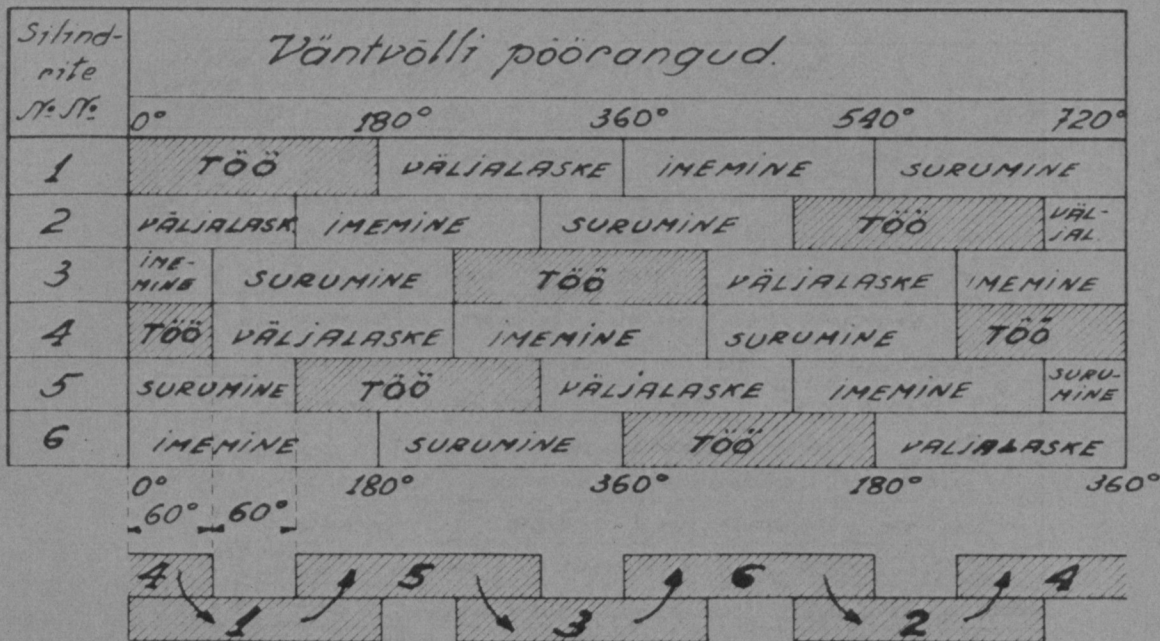 Silind-
rite
№ №
Väntvõlli pöörangud.
0° 180° 360° 540° 720°
1 TÖÖ VÄLJALASKE IMEMINE SURUMINE
2 VÄLJALASK IMEMINE SURUMINE TÖÖ VÄL-
JAL.
3 IME-
MINE SURUMINE TÖÖ VÄLJALASKE IMEMINE
4 TÖÖ VÄLJALASKE IMEMINE SURUMINE TÖÖ
5 SURUMINE TÖÖ VÄLJALASKE IMEMINE SURU-
MINE
6 IMEMINE SURUMINE TÖÖ VÄLJALASKE
0° 180° 360° 180° 360°
60° 60°
4 5 6 4
1 3 2